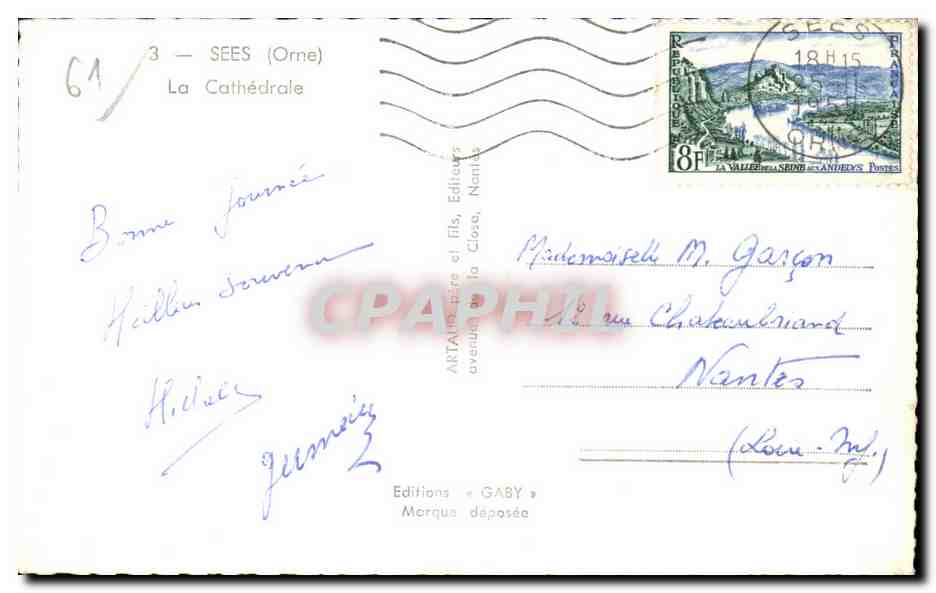 61
3 — SEES (Orne)
La Cathédrale
Bonne journée
Meilleur souvenir
Michele
Germain
ARTAUD père et Fils, Editeurs
avenue de la Close, Nantes
Editions « GABY »
Marque déposée
REPUBLIQUE
FRANCAISE
8F
LA VALLEE DE LA SEINE AUX ANDELYS POSTES
SEES
18 H 15
ORNE
Mademoiselle M. Garçon
rue Chateaubriand
Nantes
(Loire-Inf.)
CPAPHIL